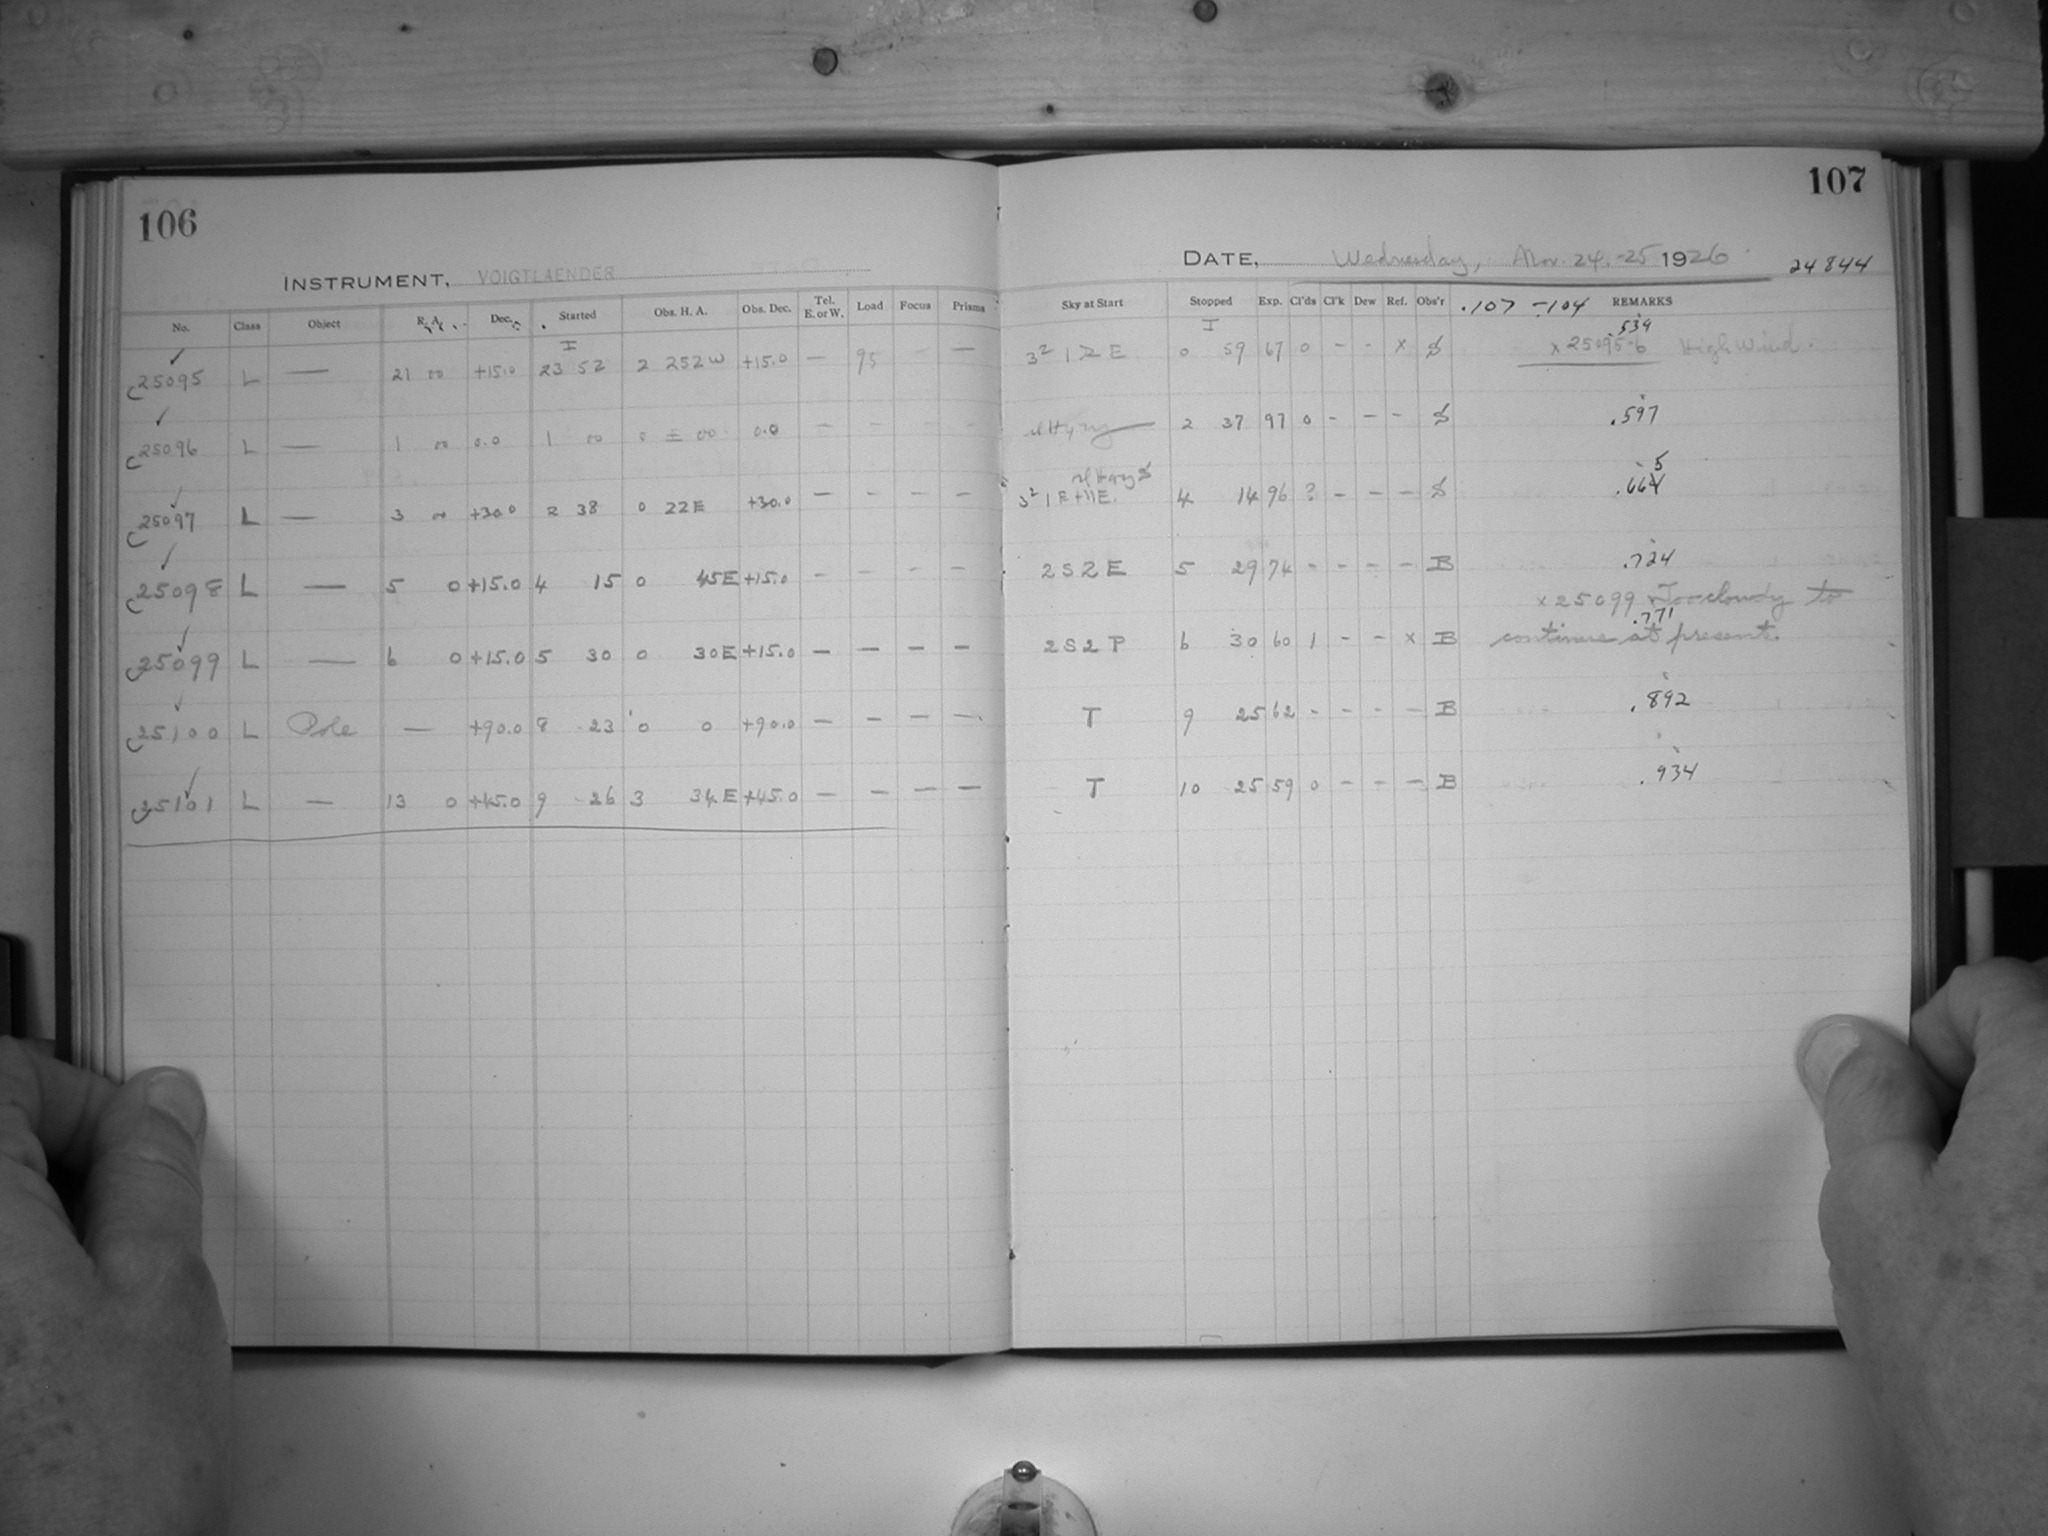 106
INSTRUMENT, VOIGTLAENDER
No. Class Object R.A. Dec. Started Obs. H. A. Obs. Dec. Tel. E. or W. Load Focus Prisms
I
C25095 L — 21 00 +15.0 23 52 2 252W +15.0 — 95 — —
C25096 L — 1 00 0.0 1 00 0 ± 00 0.0 — – – –
C25097 L — 3 00 +30.0 2 38 0 22E +30.0 — – – –
C25098 L — 5 0 +15.0 4 15 0 45E +15.0 – – – –
C25099 L — 6 0 +15.0 5 30 0 30E +15.0 – – – –
C25100 L Pole — +90.0 8 23 0 0 +90.0 – – – –
C25101 L — 13 0 +45.0 9 26 3 34E +45.0 – – – –
107
DATE, Wednesday, Nov. 24.-25 1926 24844
Sky at Start Stopped Exp. Cl'ds Cl'k Dew Ref. Obs'r .107 -104 REMARKS
I .539
3² 1 2 E 0 59 67 0 – – x S x 25095-6 High Wind.
2 37 97 0 – – – S .597
5
3² 1 E 4 14 96 ? – – – S .664
2 S 2 E 5 29 74 – – – – B .724
x 25099 Too cloudy to
.771
2 S 2 P 6 30 60 1 – – x B continue at present.
T 9 25 62 – – – – B .892
T 10 25 59 0 – – – B .934